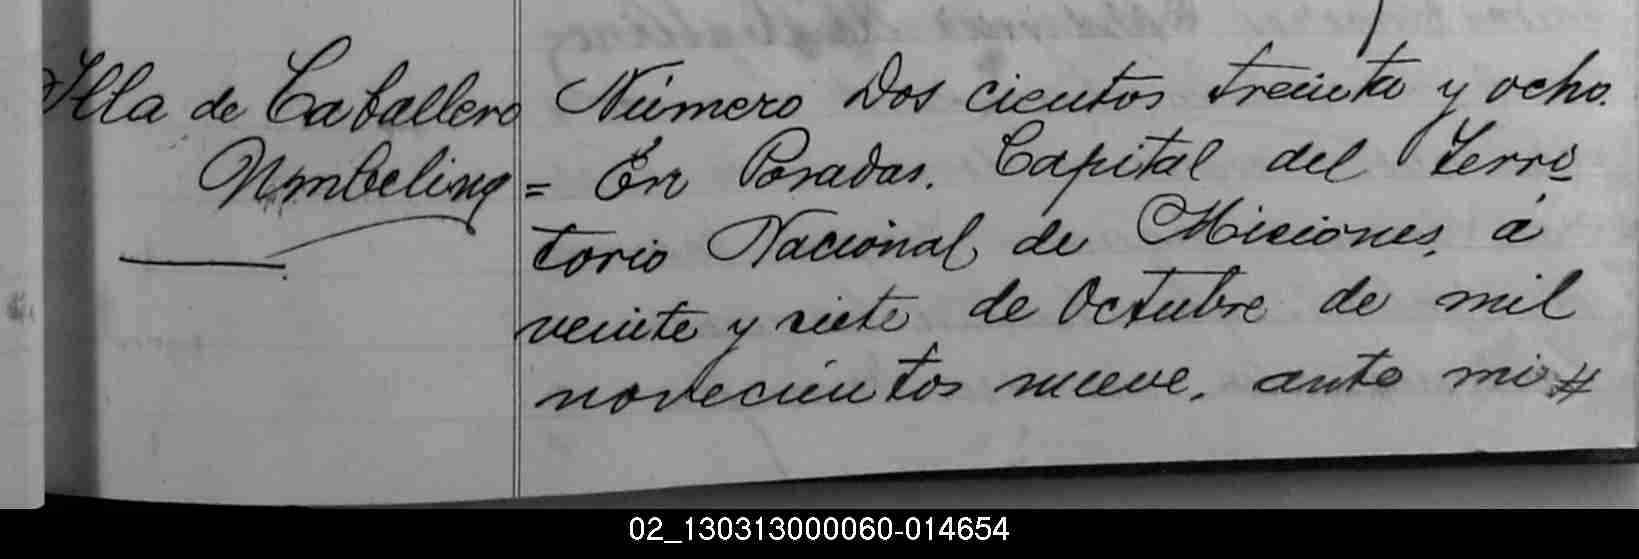 Illa de Caballero
Umbelina
Número Dos cientos treinta y ocho.
= En Posadas, Capital del Terri
torio Nacional de Misiones, á
veinte y siete de Octubre de mil
novecientos nueve, ante mi #
02_130313000060-014654